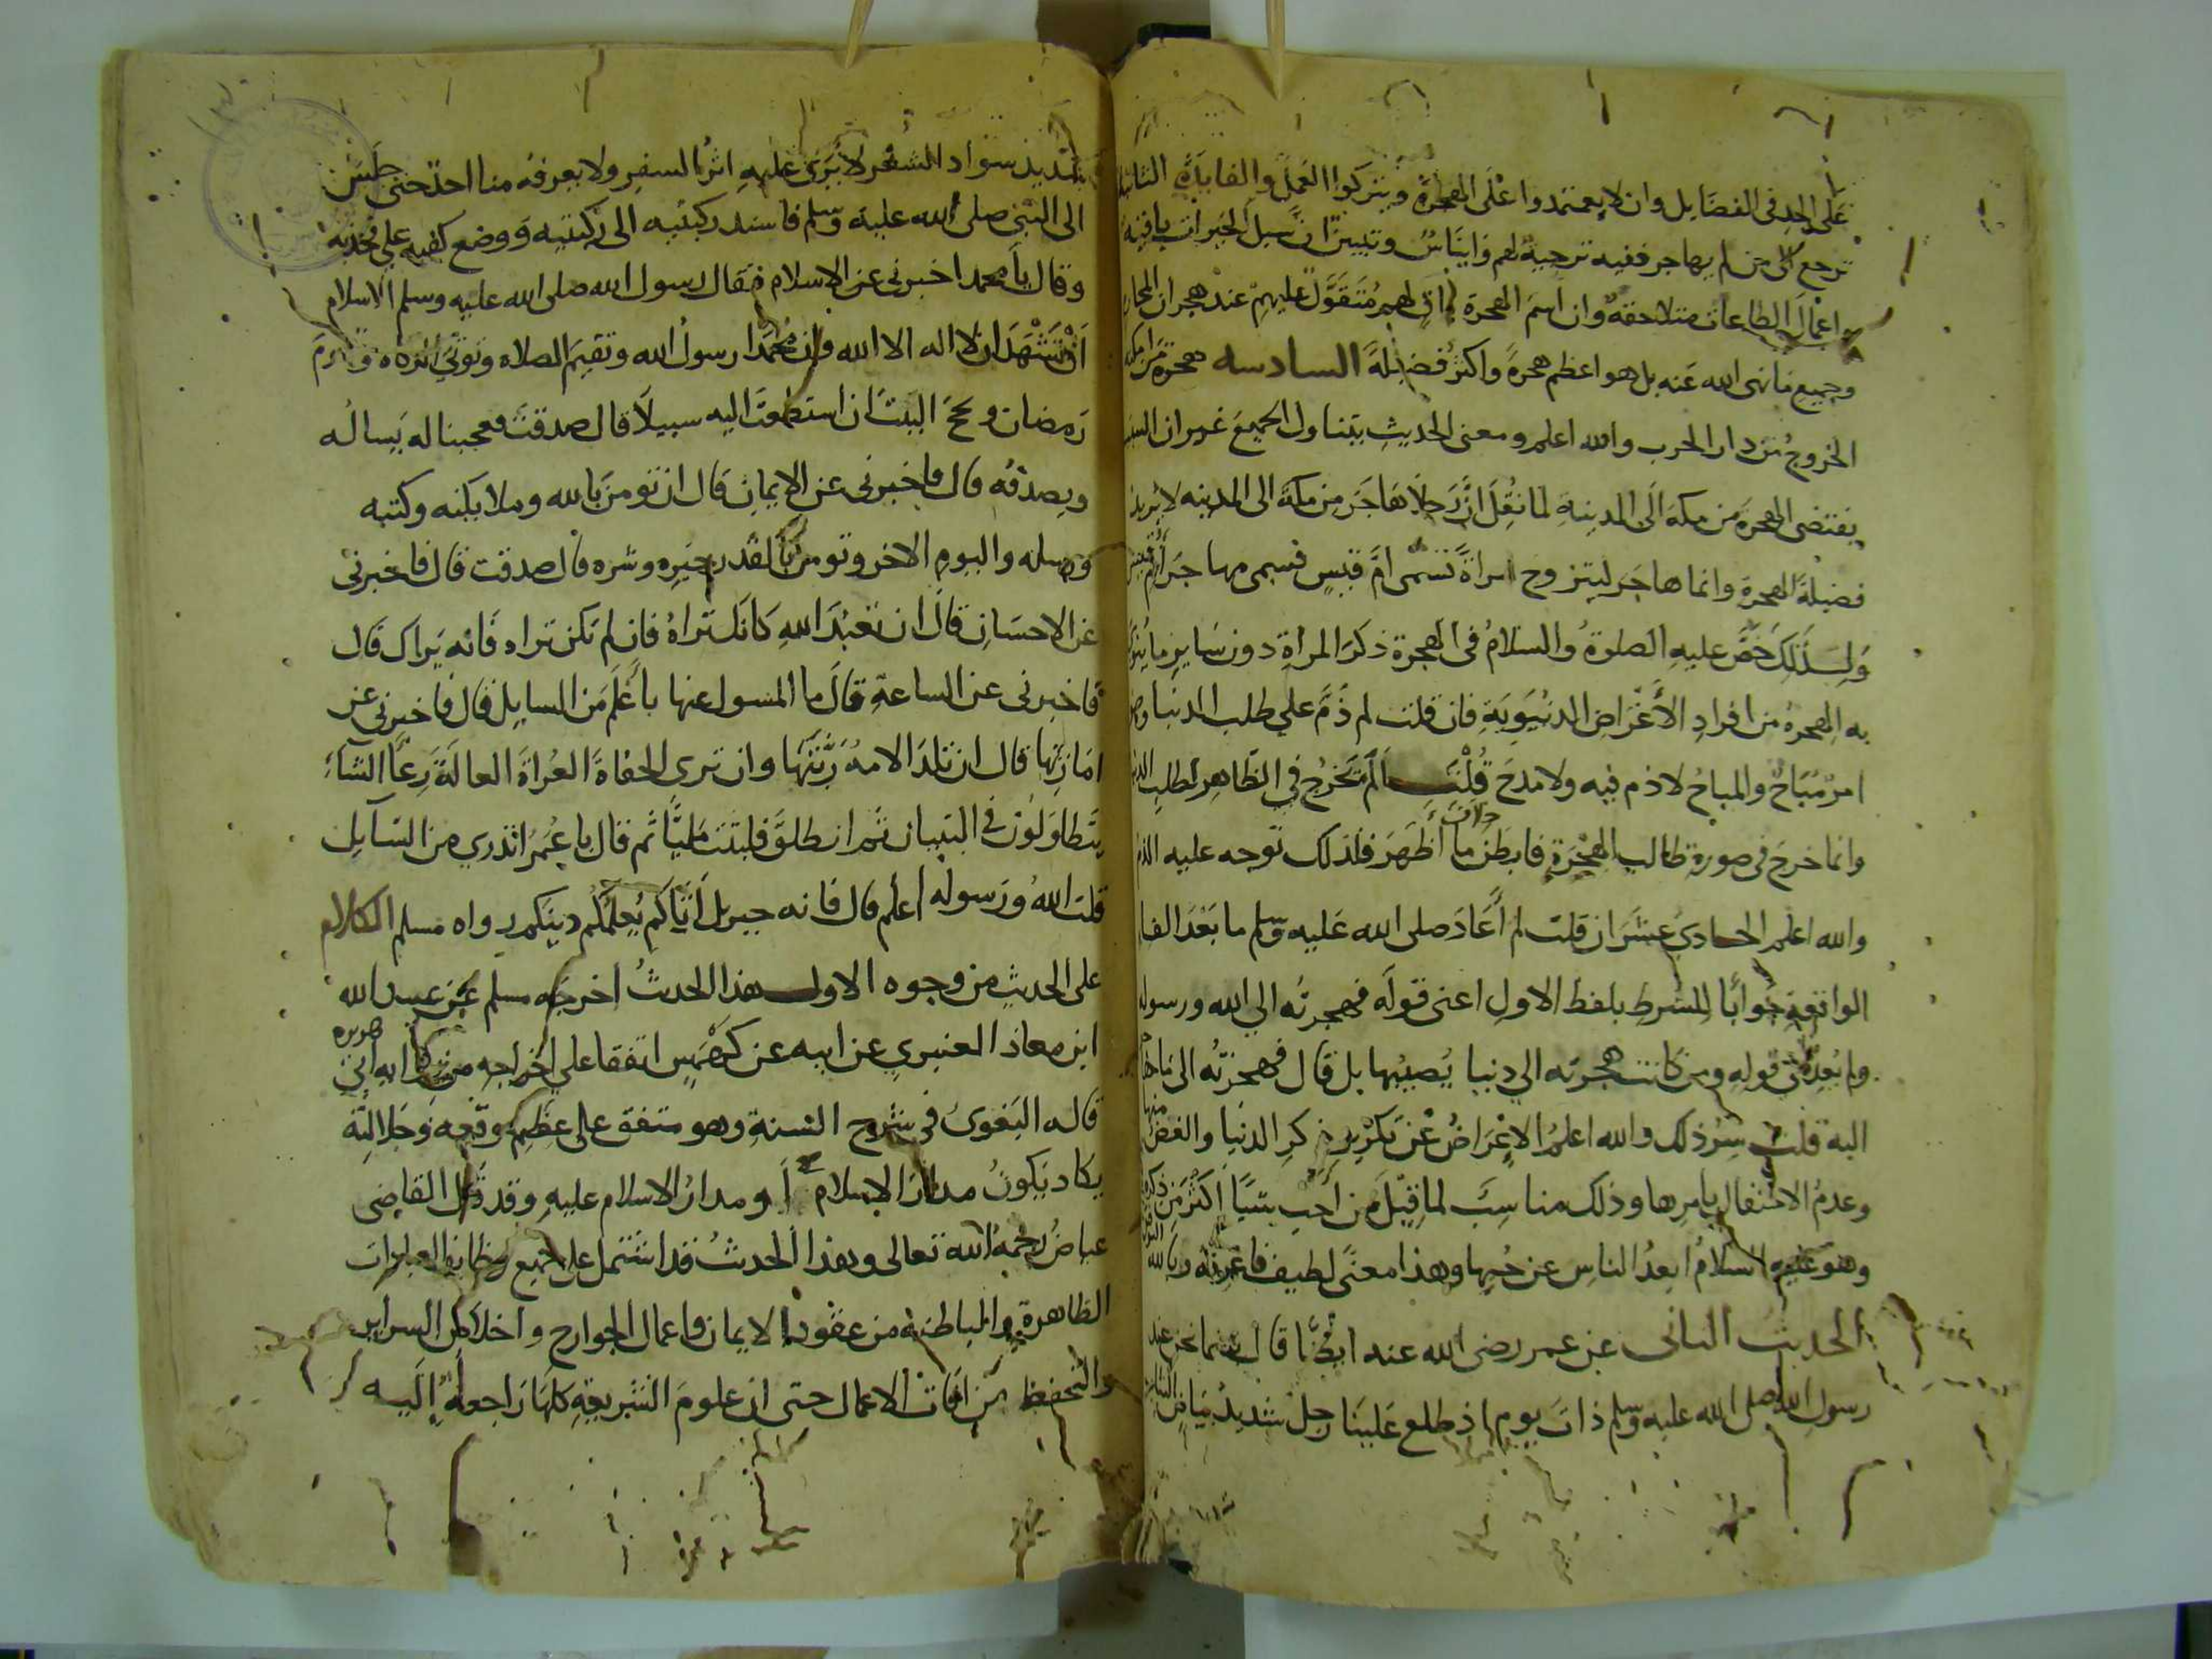 على الجد فى الفضايل وان لا يعتمدوا على الهجرة ويتركوا العمل والفايدة الثانية
ترجع كل من لم يهاجر ففيه ترجية لهم وايناس وتبيين ان سبل الخيرات باقية
واعمال الطاعات متلاحقة وان اسم الهجرة عليهم عند هجران المحارم
وجميع ما نهى الله عنه بل هو اعظم هجرة واكثر فضيلة السادسه هجرة
الخروج من دار الحرب والله اعلم ومعنى الحديث يتناول الجميع غير ان السبب
يقتضى الهجرة من مكة الى المدينة لما نقل ان رجلا هاجر من مكة الى المدينه لا يريد
فضيلة الهجرة وانما هاجر ليتزوج امراة تسمى ام قيس فسمى مهاجر ام قيس
ولذلك خص عليه الصلوة والسلام فى الهجرة ذكر المراة دون ساير ما
به الهجرة من افراد الأغراض الدنيوية فان قلت لم ذم على طلب الدنيا وهو
امر مباح والمباح لا ذم فيه ولا مدح قلت لم يخرج في الظاهر لطلب الدنيا
وانما خرج فى صورة طالب الهجرة فابطن خلاف ما أظهر فلذلك توجه عليه الذم
والله اعلم الحادي عشر ان قلت لم أعاد صلى الله عليه وسلم ما بعد الفا
الواقعة جوابا للشرط بلفظ الاول اعنى قوله فهجرته الي الله ورسوله
ولم يعده فى قوله ومن كانت هجرته الي دنيا يصيبها بل قال فهجرته الى ما هاجر
اليه قلت سر ذلك والله اعلم الاعراض عن تكرير ذكر الدنيا والغض منها
وعدم الاحتفال بامرها وذلك مناسب لما قيل من أحب شيئا اكثر من ذكره
وهو عليه السلام ابعد الناس عن حبها وهذا معنى لطيف فاعرفه وبالله التوفيق
الحديث الثانى عن عمر رضى الله عنه ايضا قال بينما نحن عند
رسول الله صلى الله عليه وسلم ذات يوم اذ طلع علينا رجل شديد بياض الثياب
شديد سواد الشعر لا يرى عليه اثر السفر ولا يعرفه منا احد حتى جلس
الى النبى صلى الله عليه وسلم فاسند ركبتيه الى ركبتيه ووضع كفيه على فخذيه
وقال يا محمد اخبرنى عن الاسلام فقال رسول الله صلى الله عليه وسلم الاسلام
أن تشهد ان لا اله الا الله وان محمدا رسول الله وتقيم الصلاه وتوتي الزكاه وتصوم
رمضان وتحج البيت ان استطعت اليه سبيلا قال صدقت فعجبنا له يساله
ويصدقه قال فاخبرنى عن الإيمان قال ان تومن بالله وملايكته وكتبه
ورسله واليوم الاخر وتومن بالقدر خيره وشره قال صدقت قال فاخبرنى
عن الاحسان قال ان تعبد الله كانك تراه فان لم تكن تراه فانه يراك قال
فاخبرنى عن الساعة قال ما المسول عنها بأعلم من السايل قال فاخبرني عن
امارتها قال ان تلد الامة ربتها وان ترى الحفاة العراة العالة رعاء الشآء
يتطاولون في البنيان ثم انطلق فلبثت مليا ثم قال يا عمر اتدري من السآيل
قلت الله ورسوله أعلم قال فانه جبريل أتاكم يعلمكم دينكم رواه مسلم الكلام
على الحديث من وجوه الاول هذا الحديث أخرجه مسلم عن عبيد الله
ابن معاذ العنبري عن ابيه عن كهمس اتفقا علي إخراجه من رواية ابى هريره
قاله البغوى فى شرح السنة وهو متفق على عظم موقعه وجلالته
يكاد يكون مدار الاسلام أو مدار الاسلام عليه وقد قال القاضى
عياض رحمه الله تعالى وهذا الحديث قد اشتمل على جميع وظايف العبادات
الظاهرة والباطنة من عقود الايمان واعمال الجوارح واخلاص السراير
والتحفظ من افات الاعمال حتى ان علوم الشريعة كلها راجعة إليه